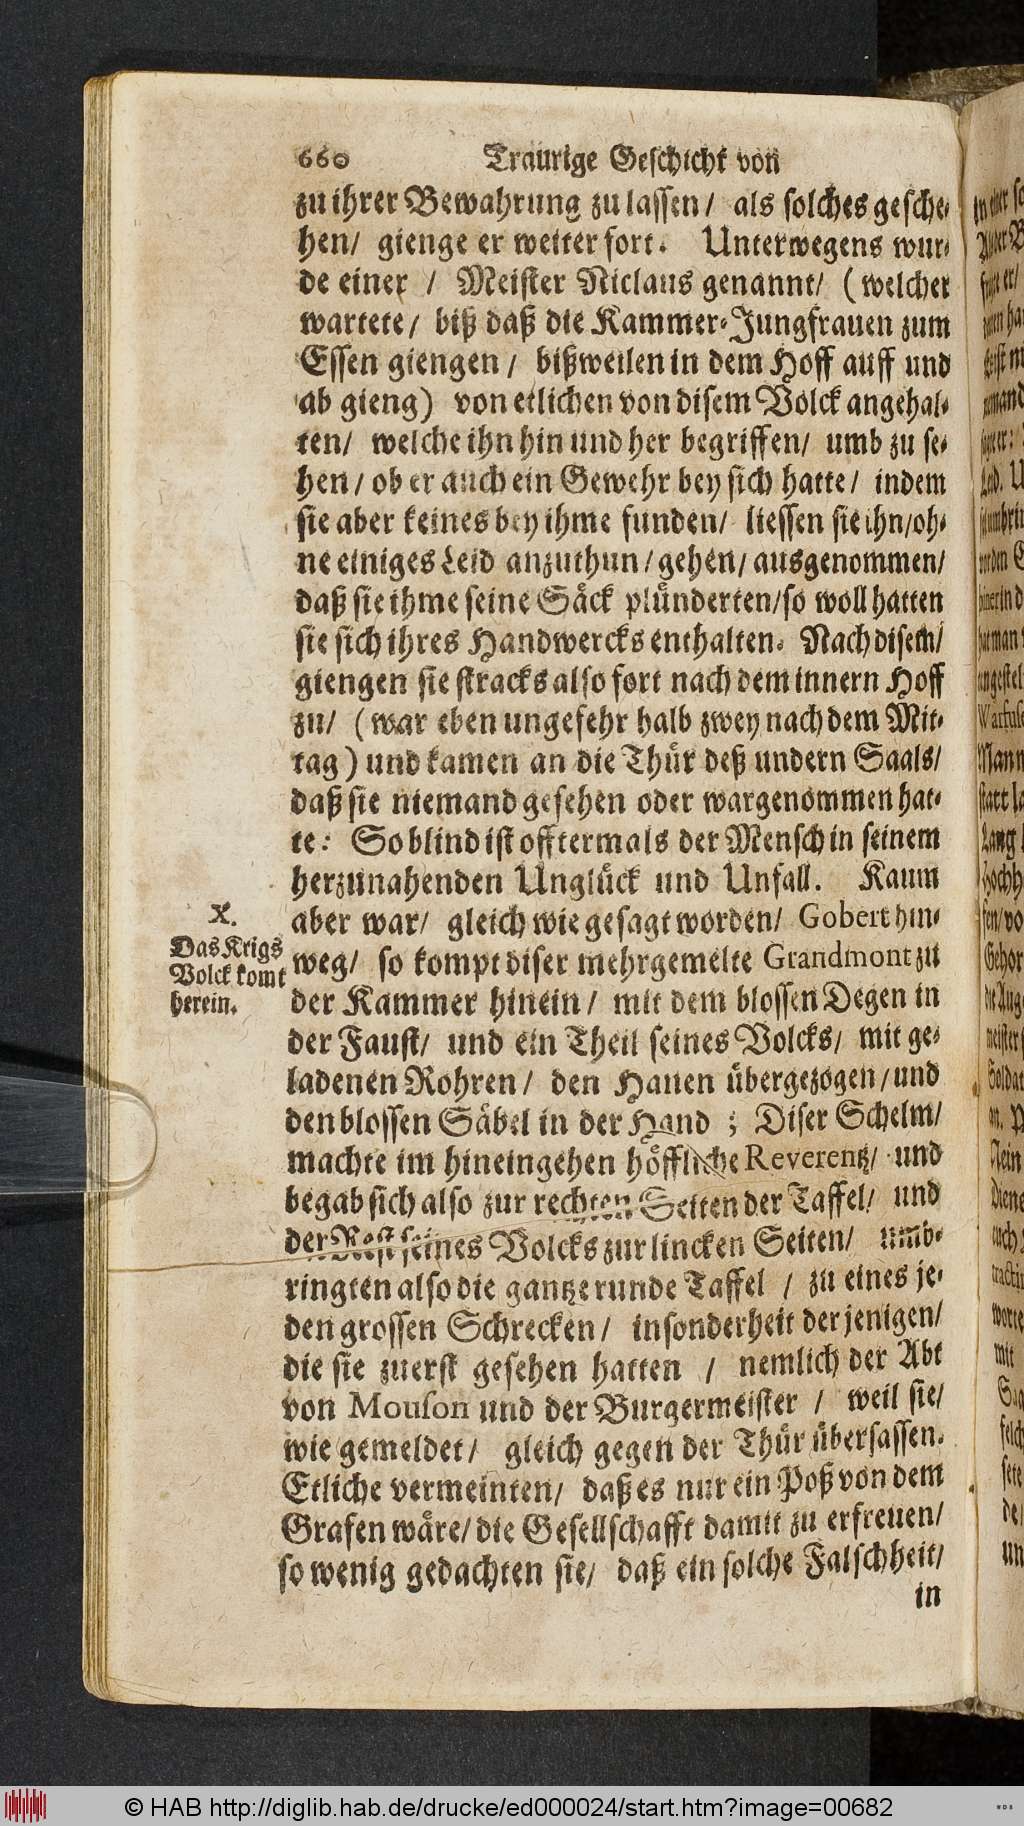 660 Traurige Geschicht von
zu ihrer Bewahrung zu lassen/ als solches gesche-
hen/ gienge er weiter fort. Unterwegens wur-
de einer / Meister Niclaus genannt/ (welcher
wartete/ biß daß die Kammer-Jungfrauen zum
Essen giengen / bißweilen in dem Hoff auff und
ab gieng) von etlichen von disem Volck angehal-
ten/ welche ihn hin und her begriffen/ umb zu se-
hen/ ob er auch ein Gewehr bey sich hatte/ indem
sie aber keines bey ihme funden/ liessen sie ihn/oh-
ne einiges Leid anzuthun/gehen/ausgenommen/
daß sie ihme seine Säck plünderten/so woll hatten
sie sich ihres Handwercks enthalten. Nach disem/
giengen sie stracks also fort nach dem innern Hoff
zu/ (war eben ungefehr halb zwey nach dem Mit-
tag) und kamen an die Thür deß undern Saals/
daß sie niemand gesehen oder wargenommen hat-
te: So blind ist offtermals der Mensch in seinem
herzunahenden Unglück und Unfall. Kaum
X.
Das Krigs
Volck komt
herein.
aber war/ gleich wie gesagt worden/ Gobert hin-
weg/ so kompt diser mehrgemelte Grandmont zu
der Kammer hinein/ mit dem blossen Degen in
der Faust/ und ein Theil seines Volcks/ mit ge-
ladenen Rohren/ den Hanen übergezogen/und
den blossen Säbel in der Hand ; Diser Schelm/
machte im hineingehen höffliche Reverentz/ und
begab sich also zur rechten Seiten der Taffel/ und
der Rest seines Volcks zur lincken Seiten/ umb-
ringten also die gantze runde Taffel / zu eines je-
den grossen Schrecken/ insonderheit derjenigen/
die sie zuerst gesehen hatten / nemlich der Abt
von Mouson und der Burgermeister / weil sie/
wie gemeldet/ gleich gegen der Thür übersassen.
Etliche vermeinten/ daß es nur ein Poß von dem
Grafen wäre/die Gesellschafft damit zu erfreuen/
so wenig gedachten sie/ daß ein solche Falschheit/
in
© HAB http://diglib.hab.de/drucke/ed000024/start.htm?image=00682